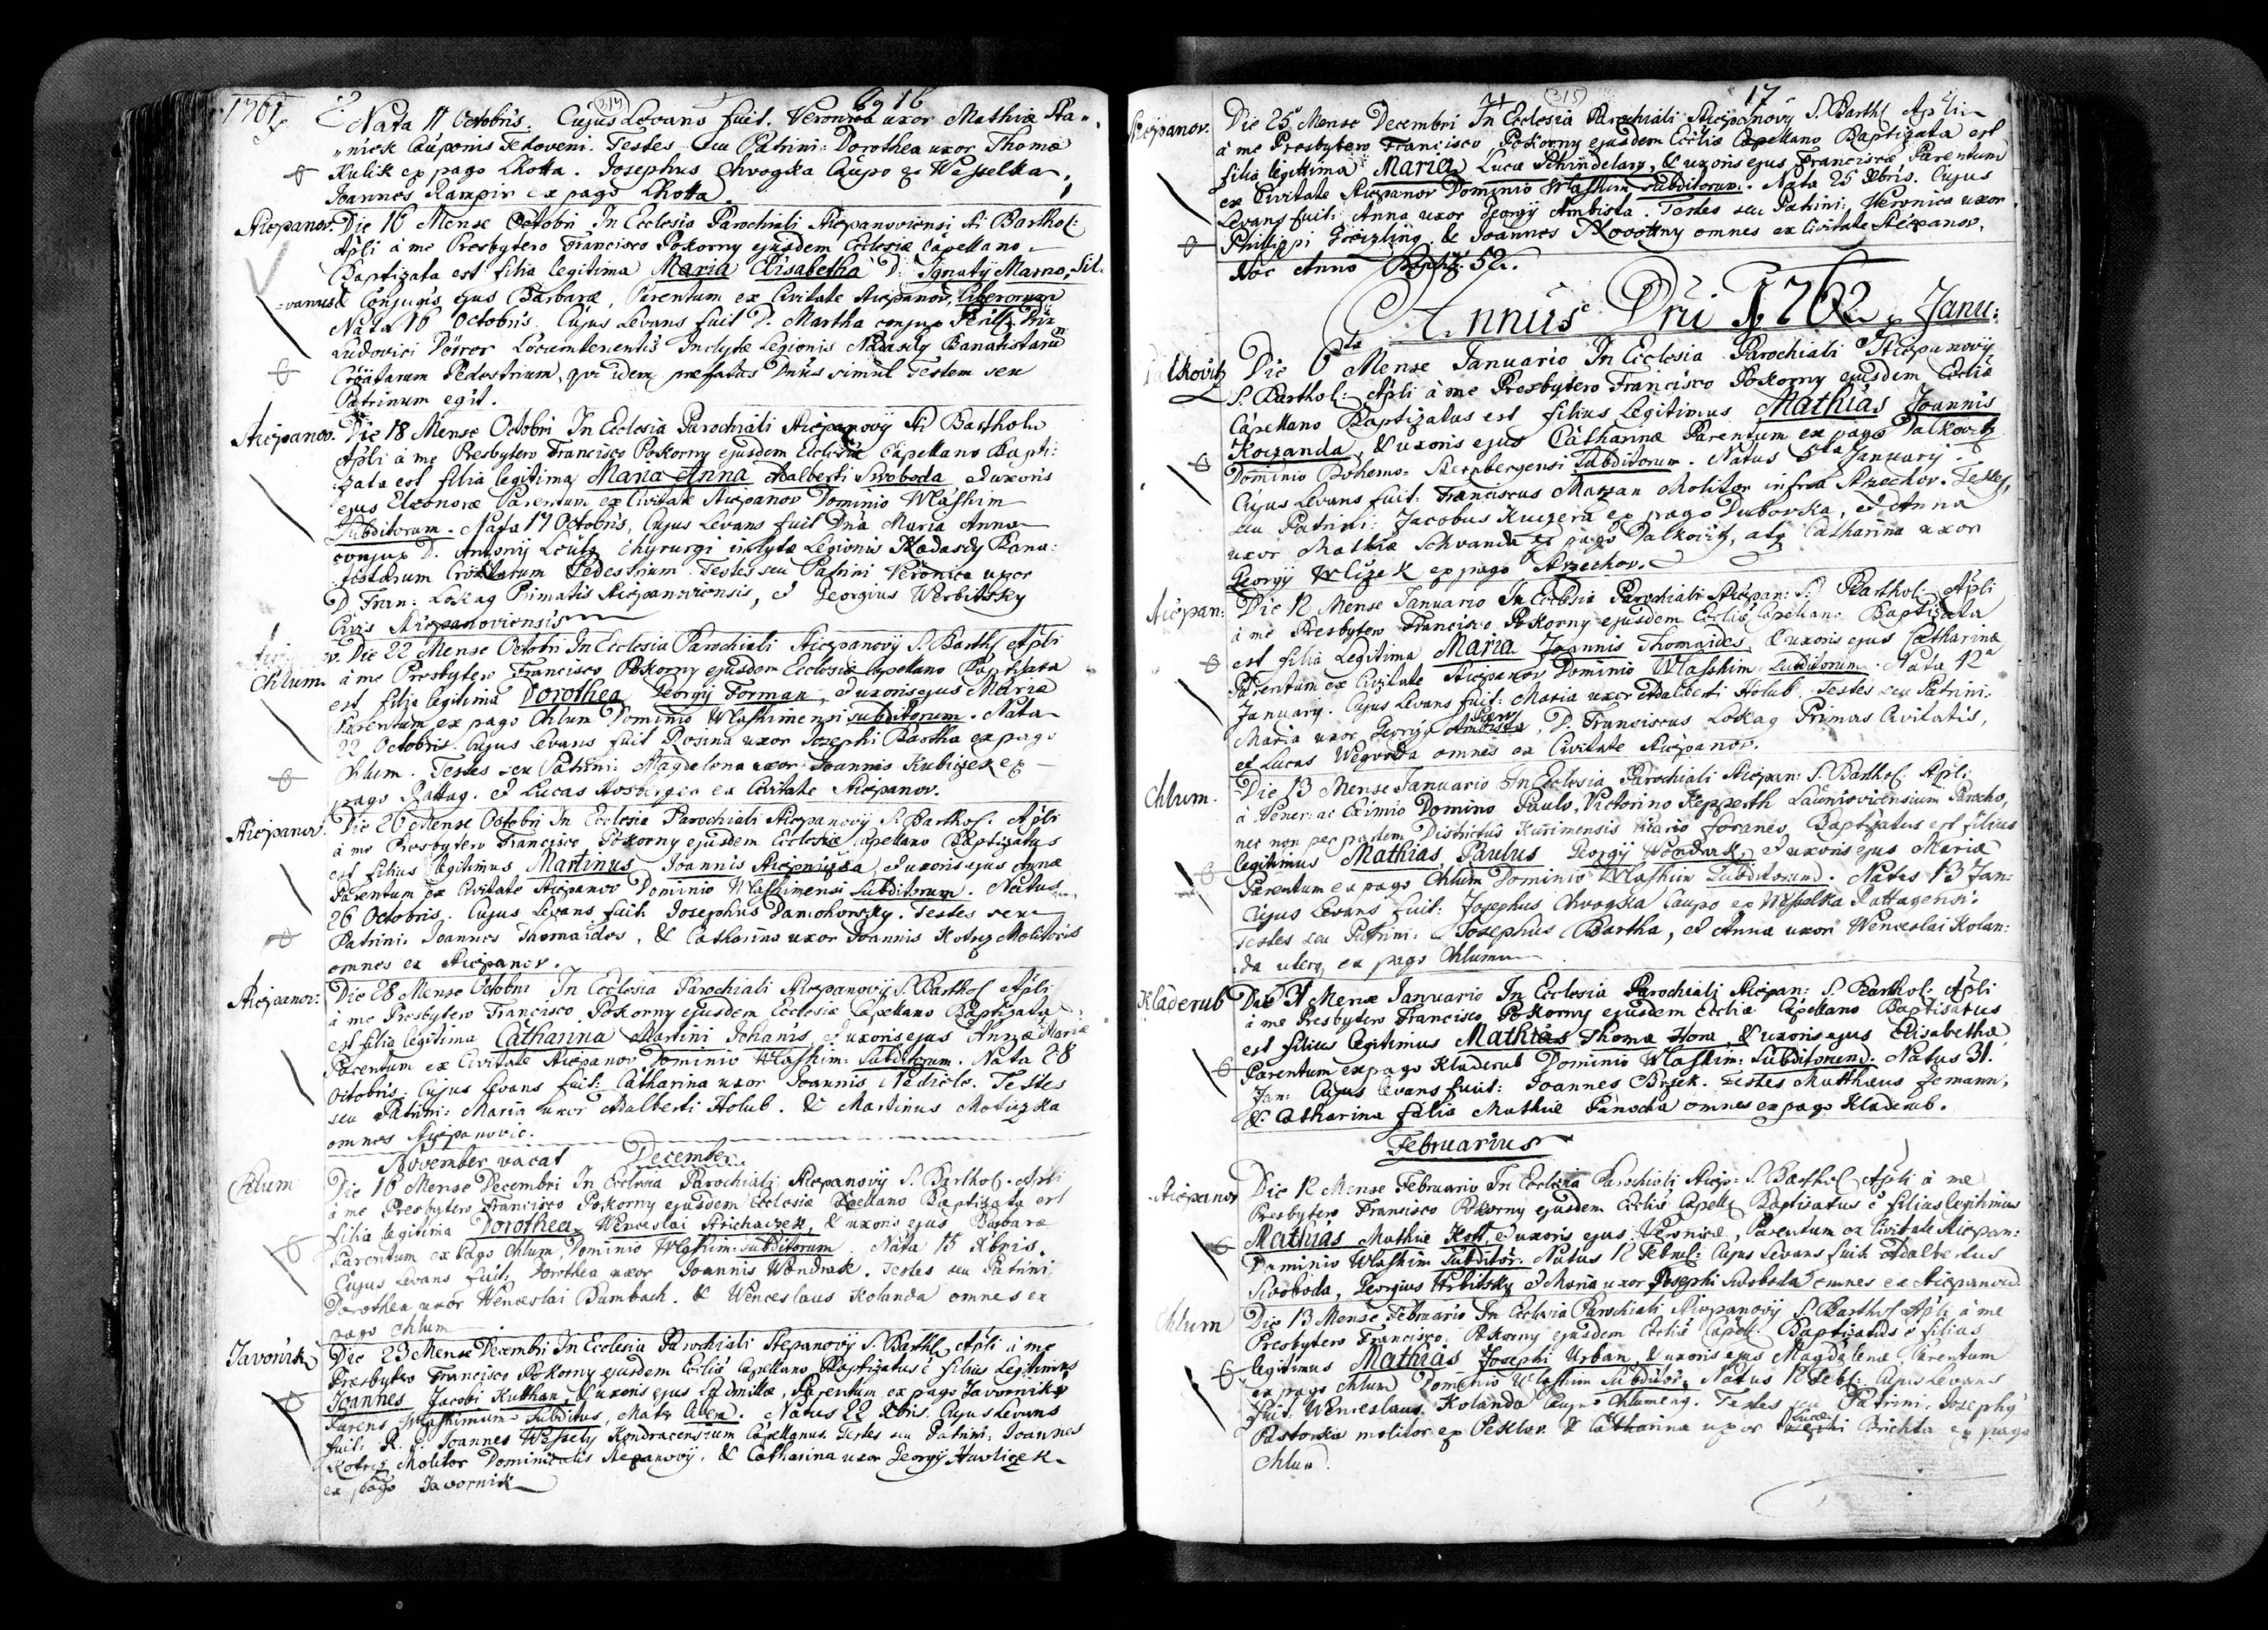 1761
314
69 16
Nata 11 Octobris. Cujus Levans fuit. Veronica uxor Mathiæ Sta„
„niek Cauponis Tehoveni. Testes seu Patrini: Dorothea uxor Thomæ
Kulik ex pago Lhotta. Josephus Chvogka Caupo ex Wesselka.
Joannes Rampir ex pago Lhotta.
Sticpanov. Die 16 Mense Octobri In Ecclesia Parochiali Sticpanoviensi St Barthol:
Apli à me Presbytero Francisco Pokorny ejusdem Ecclesiæ Capellano
Baptizata est filia legitima Maria Elisabetha D: Ignatij Marno, Sil-
-vanus & Conjugis ejus Barbaræ, Parentum ex Civitate Sticpanov, Liberorum
Nata 16 Octobris. Cujus Levans fuit D. Martha conjux
Ludovici Dörrer Locumtenentis Inclytæ Legionis Nadasdy Banatistarum
Croatarum Pedestrium, qvi idem præfatus Dnus simul Testem seu
Patrinum egit.
Sticpanov. Die 18 Mense Octobri In Ecclesia Parochiali Sticpanovij St Barthol:
Apli à me Presbytero Francisco Pokorny ejusdem Ecclesiæ Capellano Bapti:
zata est filia legitima Maria Anna Adalberti Swoboda & uxoris
ejus Eleonoræ Parentum ex Civitate Sticpanov Dominio Wlashim
Subditorum. Nata 17 Octobris, Cujus Levans fuit Dna Maria Anna
conjux D. Antonij Loutz Chyrurgi inclytæ Legionis Nadasdy Bana:
tistarum Croatarum Pedestrium. Testes seu Patrini Veronica uxor
D Fran: Lokag Primatis Sticpanoviensis, & Georgius Wrbitsky
Civis Sticpanoviensis
Chlum. Die 22 Mense Octobri In Ecclesia Parochiali Sticpanovij S. Barthl Apli
à me Presbytero Francisco Pokorny ejusdem Ecclesiæ Capellano Baptizata
est filia legitima Dorothea Georgij Forman, & uxoris ejus Mariæ
Parentum ex pago Chlum Dominio Wlashimensi subditorum. Nata
22 Octobris. Cujus Levans fuit Rosina uxor Josephi Bartha ex pago
Chlum. Testes seu Patrini: Magdalena uxor Joannis Kubiczek ex
pago Rattag. & Lucas Hosberger ex Civitate Sticpanov.
Sticpanov. Die 26 Mense Octobri In Ecclesia Parochiali Sticpanovij S. Barthol. Apli
à me Presbytero Francisco Pokorny ejusdem Ecclesiæ Capellano Baptizatus
est filius legitimus Martinus Joannis & uxoris ejus Annæ
Parentum ex Civitate Sticpanov Dominio Wlashimensi Subditorum. Natus
26 Octobris. Cujus Levans fuit: Josephus Damohorsky. Testes seu
Patrini: Joannes Thomaides, & Catharina uxor Joannis Kotrz Molitoris
omnes ex Sticpanov.
Sticpanov: Die 28 Mense Octobri In Ecclesia Parochiali Sticpanovij S. Barthol Apli
à me Presbytero Francisco Pokorny ejusdem Ecclesiæ Capellano Baptizata
est filia legitima Catharina Martini Johanis & uxoris ejus Annæ Mariæ
Parentum ex Civitate Sticpanov Dominio Wlashim: Subditorum. Nata 28
Octobris. Cujus Levans fuit: Catharina uxor Joannis Testes
seu Patrini: Maria uxor Adalberti Holub. & Martinus Moticzka
omnes Sticpanovic.
November vacat December
Chlum Die 16 Mense Decembri In Ecclesia Parochiali Sticpanovij S. Barthol. Apli
à me Presbytero Francisco Pokorny ejusdem Ecclesiæ Capellano Baptizata est
filia legitima Dorothea Wenceslai Strichaczek, & uxoris ejus Barbaræ
Parentum ex pago Chlum, Dominio Wlashim: subditorum. Nata 15 Xbris.
Cujus Levans fuit. Dorothea uxor Joannis Wondrak. Testes seu Patrini
Dorothea uxor Wenceslai Bumbach. & Wenceslaus Kolanda omnes ex
pago Chlum
Javornik Die 23 Mense Decembri In Ecclesia Parochiali Stepanovij S. Barthl Apli à me
Presbytero Francisco Pokorny ejusdem Eccliæ Capellano Baptizatus e filius Legitimus
Joannes Jacobi Kutthan, & uxoris ejus Ludmillæ, Parentum ex pago Javornik
Parens Subditus, Natus 22 Xbris. Cujus Levans
fuit R. P. Joannes Wessely Kondracensium Capellanus. Testes seu Patrini: Joannes
Kotrz Molitor Dominicalis Stepanovij, & Catharina uxor Georgij Hawliczek
ex pago Javornik
315
17
Sticpanov. Die 25 Mense Decembri In Ecclesia Parochiali Sticpanovij S. Barthl Apli
à me Presbytero Francisco Pokorny ejusdem Eccliæ Capellano Baptizata est
filia legittima Maria Lucæ Schindelarz, & uxoris ejus Franciscæ, Parentum
ex Civitate Sticpanov Dominio Wlashim, subditorum. Nata 25 Xbris. Cujus
Levans fuit: Anna uxor Georgij Ambista. Testes seu Patrini: Veronica uxor
Philippi & Joannes Nowottny omnes ex Civitate Sticpanov.
Hoc Anno Baptiz: 52.
Annus Dni 1762. Janu:
Dalkovitz Die 6ta Mense Januario In Ecclesia Parochiali Sticpanovij
S. Barthol: Apli à me Presbytero Francisco Pokorny ejusdem Eccliæ
Capellano Baptizatus est filius Legitimus Mathias Joannis
Koczanda, & uxoris ejus Catharinæ Parentum ex pago Dalkovitz
Dominio Bohemo-Sternbergensi Subditorum. Natus 5ta January.
Cujus Levans fuit: Franciscus Marzan Molitor infra Strzechov. Testes,
seu Patrini: Jacobus Kuczera ex pago Dubovka, & Anna
uxor Mathiæ Schvanda ex pago Dalkovitz, atq Catharina uxor
Georgij Wlczek ex pago Strzechov.
Sticpan: Die 12 Mense Januario In Ecclesia Parochiali Sticpan: S. Barthol: Apli
à me Presbytero Francisco Pokorny ejusdem Eccliæ Capellano Baptizata
est filia Legitima Maria Joannis Thomaides, & uxoris ejus Catharinæ
Parentum ex Civitate Sticpanov Dominio Wlashim: Subditorum. Nata 12a
January. Cujus Levans fuit: Maria uxor Adalberti Holub. Testes seu Patrini:
Maria uxor Georgij Ambista, D. Franciscus Lokag Primas Civitatis,
et Lucas Wegvoda omnes ex Civitate Sticpanov.
Chlum. Die 13 Mense Januario In Ecclesia Parochiali Sticpan: S. Barthol: Apli
à Vener: ac Eximio Domino Paulo, Victorino Kepperth Launiovicensium Parocho,
nec non per partem Districtus Kurimensis Vicario foraneo, Baptizatus est filius
legitimus Mathias Paulus Georgij Wondrak, & uxoris ejus Mariæ
Parentum ex pago Chlum Dominio Wlashim Subditorum. Natus 13 Jan:
Cujus Levans fuit: Josephus Chvogka Caupo ex Wesselka Rattagensi.
Testes seu Patrini: Josephus Bartha, & Anna uxor Wenceslai Kolan:
da uterq ex pago Chlum
Kladerub Die 31 Mense Januario In Ecclesia Parochiali Sticpan: S. Barthol: Apli
à me Presbytero Francisco Pokorny ejusdem Eccliæ Capellano Baptisatus
est filius legitimus Mathias Thoma Hora, & uxoris ejus Elisabethæ
Parentum ex pago Kladerub Dominio Wlashim: Subditorum. Natus 31.
Jan: Cujus Levans fuit: Joannes Brzek. Testes Matthæus Zemann,
& Catharina filia Mathiæ Panocha omnes ex pago Kladerub.
Februarius
Sticpanov Die 12 Mense Februario In Ecclesia Parochiali Sticp: S. Barthol Apli à me
Presbytero Francisco Pokorny ejusdem Eccliæ Capell: Baptisatus e filius legitimus
Mathias Mathiæ Kott, & uxoris ejus Veronicæ, Parentum ex Civitate Sticpan:
Dominio Wlashim Subditor: Natus 12 Febru: Cujus Levans fuit Adalbertus
Swoboda, Georgius Wrbitsky & Maria uxor Josephi Swoboda omnes ex Sticpanov.
Chlum Die 13 Mense Februario In Ecclesia Parochiali Sticpanovij S. Barthol Apli à me
Presbytero Francisco Pokorny ejusdem Eccliæ Capell: Baptizatus e filius
legitimus Mathias Josephi Urban, & uxoris ejus Magdalenæ Parentum
ex pago Chlum Dominio Wlashim subditor: Natus 12 Feb: Cujus Levans
fuit: Wenceslaus Kolanda Caupo Chlumens. Testes seu Patrini: Josephus
Pastorka molitor ex Peklov & Catharina uxor Lucæ Brichta ex pago
Chlum.